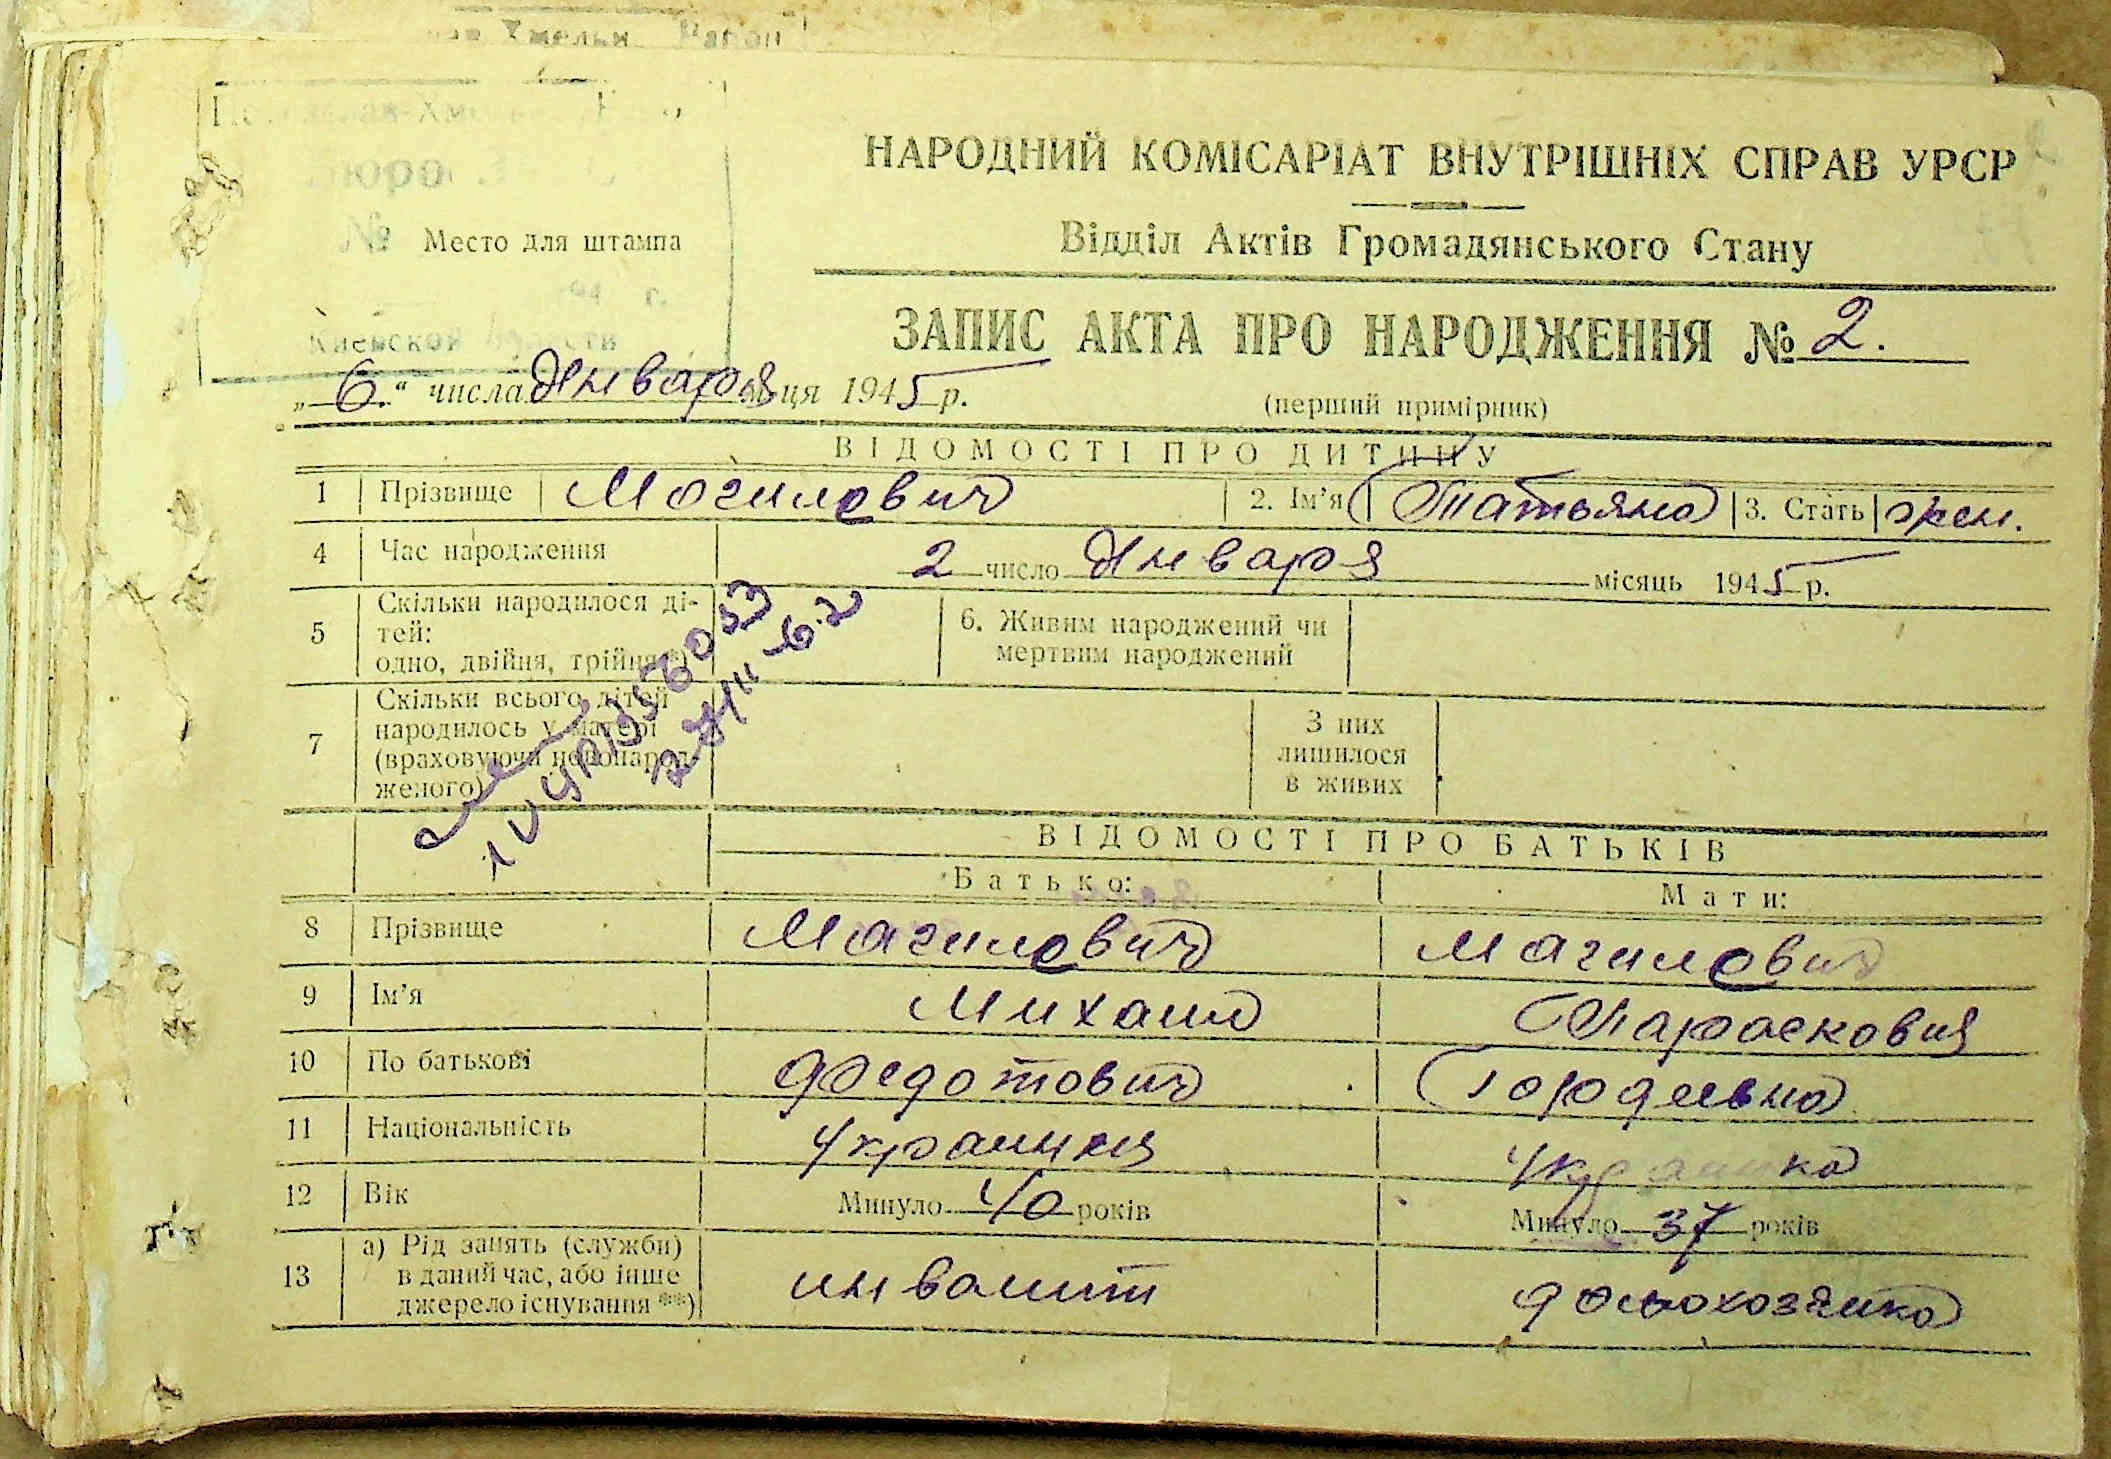 НАРОДНИЙ КОМІСАРІАТ ВНУТРІШНІХ СПРАВ УРСР
Відділ Актів Громадянського Стану
№ Место для штампа
Киевской области
ЗАПИС АКТА ПРО НАРОДЖЕННЯ № 2.
„6.“ числа Января м-ця 1945 р.
(перший примірник)
ВІДОМОСТІ ПРО ДИТИНУ
1 Прізвище Могилович 2. Ім'я Татьяна 3. Стать жен.
4 Час народження 2 число Января місяць 1945 р.
5 Скільки народилося дітей: одно, двійня, трійня *) 6. Живим народжений чи мертвим народжений
7 Скільки всього дітей народилось у матері (враховуючи новонародженого) З них лишилося в живих
ВІДОМОСТІ ПРО БАТЬКІВ
Батько: Мати:
8 Прізвище Магилович Магилович
9 Ім'я Михаил Парасковия
10 По батькові Федотович Гордеевна
11 Національність Украинця Украинка
12 Вік Минуло 40 років Минуло 37 років
13 а) Рід занять (служби) в даний час, або інше джерело існування **) инвалит домохозяйка